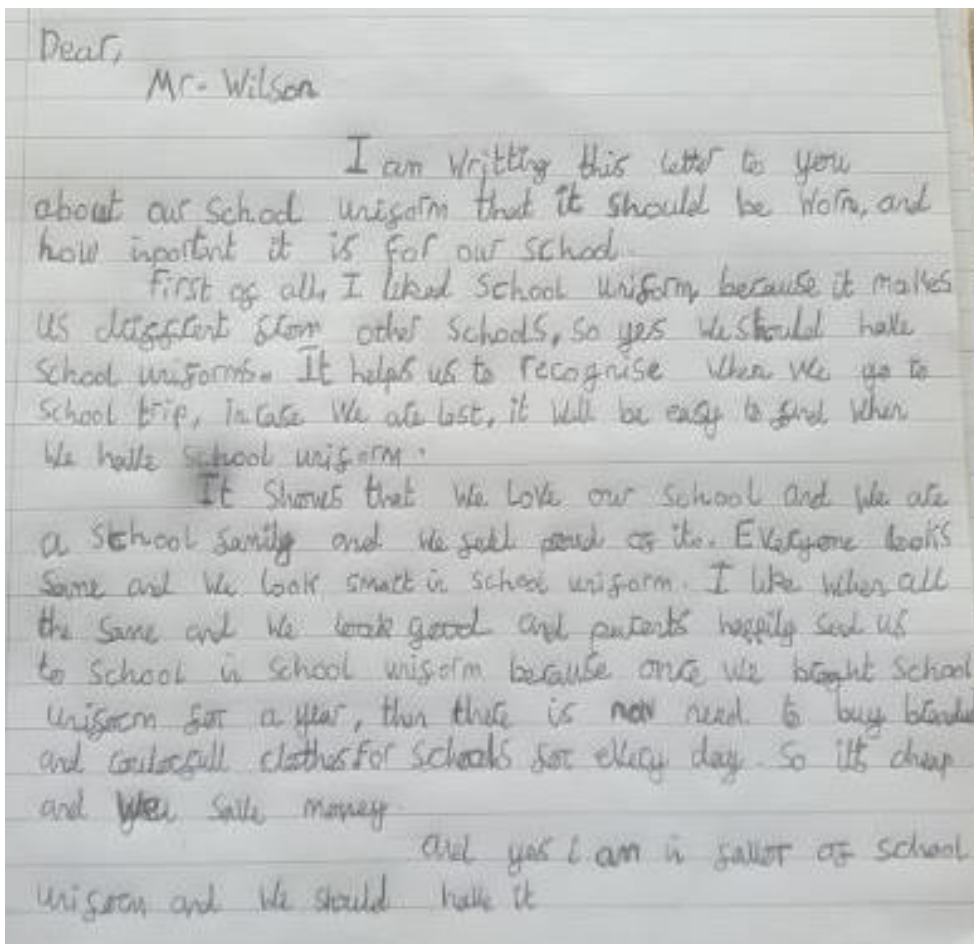 Dear,
Mr. Wilson
I am writting this letter to you
about our school uniform that it should be worn, and
how inportnt it is for our school.
First of all, I liked school uniform, because it makes
us different from other schools, so yes we should have
school uniforms. It helps us to recognise when we go to
school trip, in case we are lost, it will be easy to find when
we have school uniform.
It shows that we love our school and we are
a school family and we feel proud of it. Everyone looks
same and we look smart in school uniform. I like when all
the same and we look good and parents happily send us
to school in school uniform because once we bought school
uniform for a year, then there is now need to buy
and clothes for schools for every day. So it's cheap
and save money.
and yes i am in favor of school
uniform and we should have it